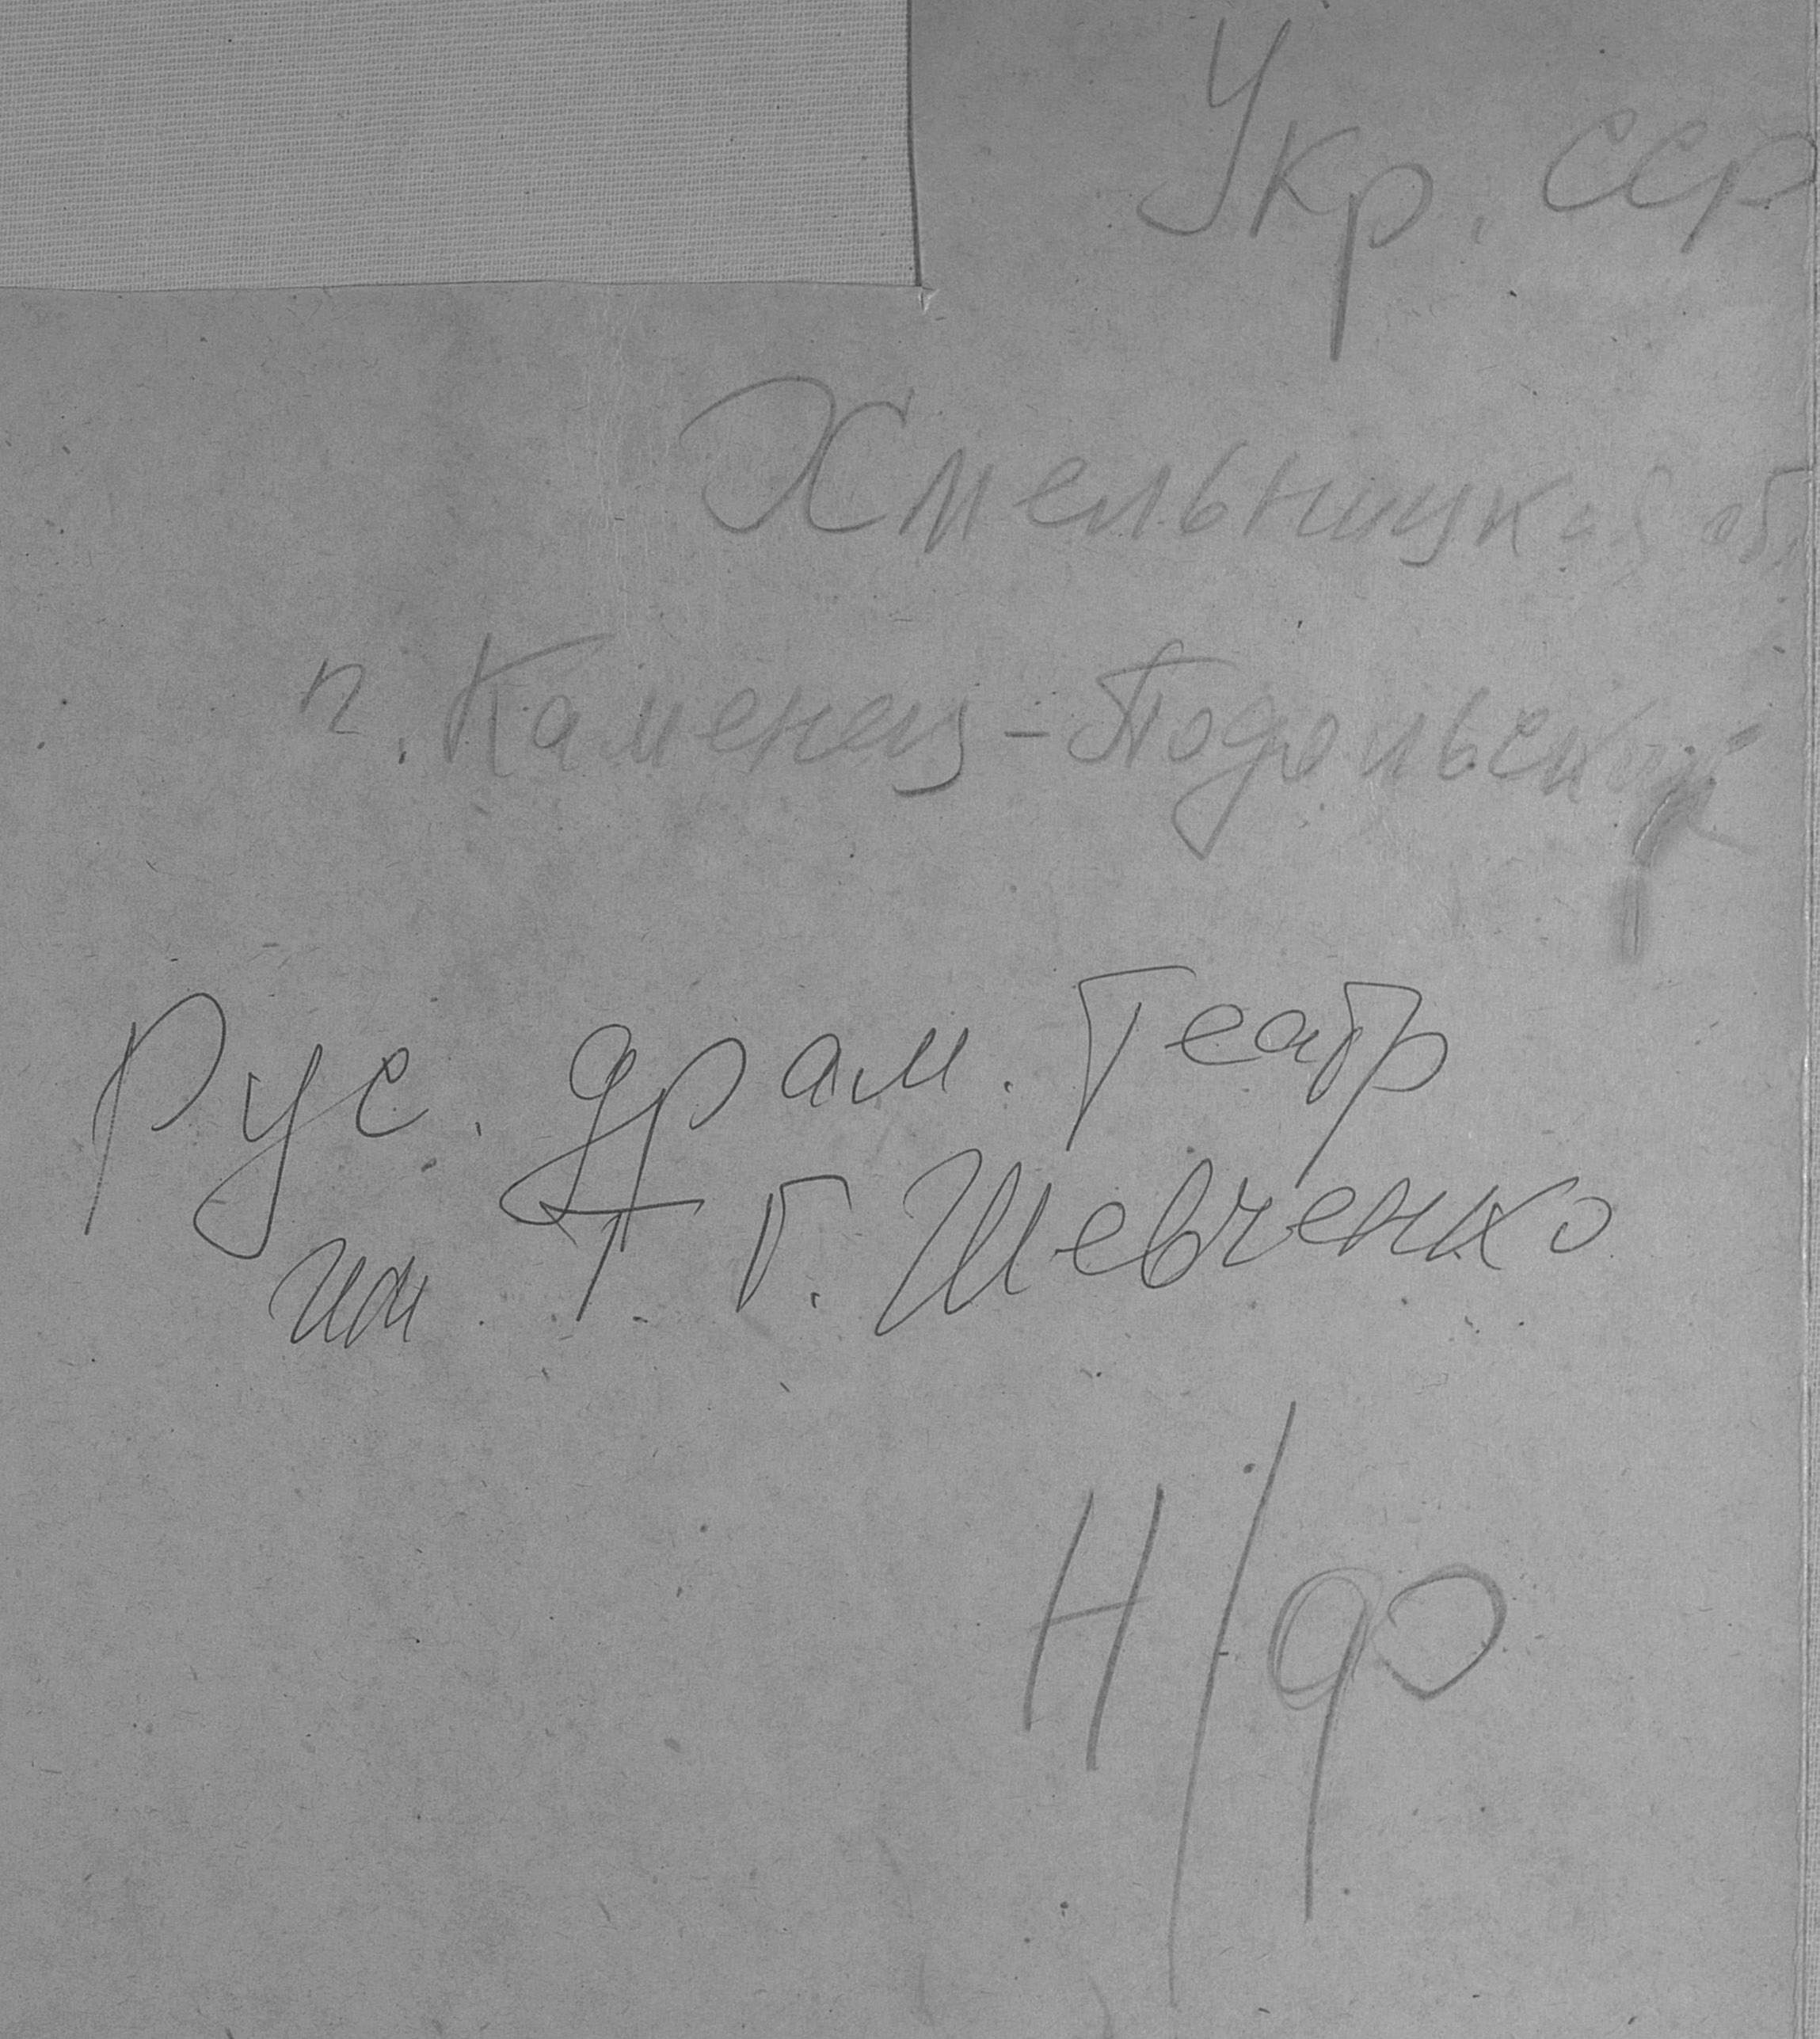 Укр. ССР
Хмельницкая обл
г. Каменец-Подольский
Рус. драм. театр
им. Т. Г. Шевченко
Н/ф